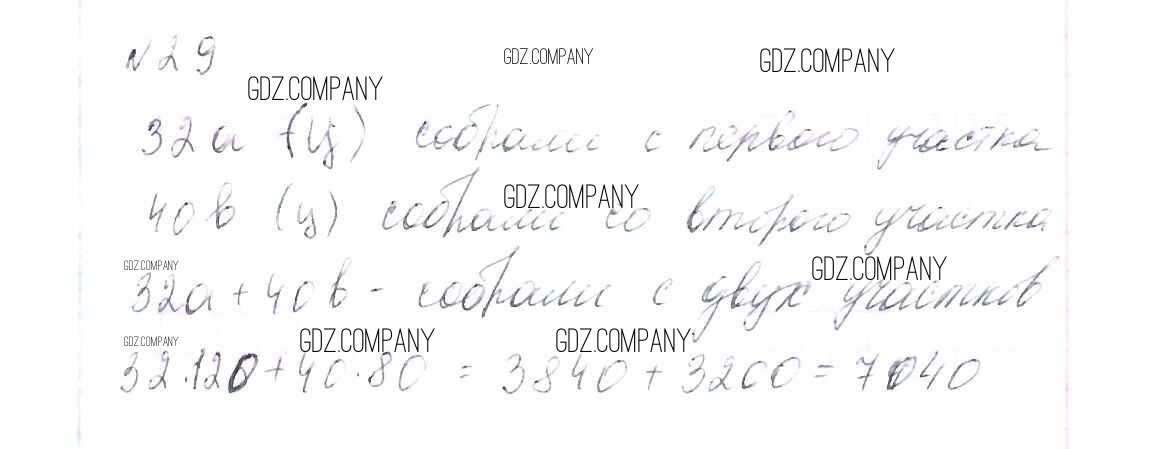 № 29
GDZ.COMPANY GDZ.COMPANY
GDZ.COMPANY
32а (ц) собрали с первого участка
GDZ.COMPANY
40в (ц) собрали со второго участка
GDZ.COMPANY GDZ.COMPANY
32а + 40в - собрали с двух участков
GDZ.COMPANY GDZ.COMPANY GDZ.COMPANY
32·120 + 40·80 = 3840 + 3200 = 7040